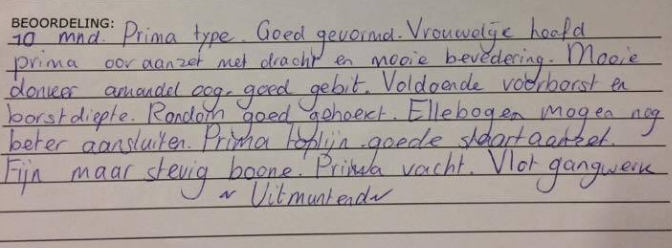 BEOORDELING:
10 mnd. Prima type. Goed gevormd. Vrouwelijk hoofd
prima ooraanzet met dracht en mooie bevedering. Mooie
donker amandel oog, goed gebit. Voldoende voorborst en
borstdiepte. Rondom goed gehoekt. Ellebogen mogen nog
beter aansluiten. Prima toplijn goede staartaanzet.
Fijn maar stevig boone. Prima vacht. Vlot gangwerk
~ Uitmuntend ~